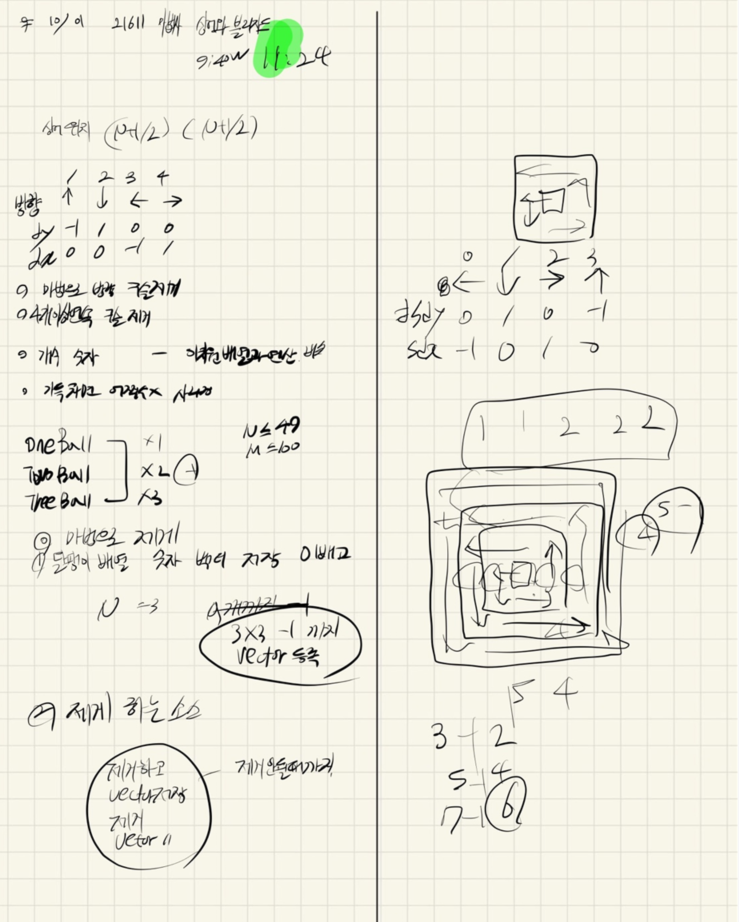 10/01 21611 마법사 상어와 블리자드
9:40 11:24
상어위치 (N+1/2) (N+1/2)
1 2 3 4
방향 ↑ ↓ ← →
dy -1 1 0 0
dx 0 0 -1 1
마법으로 방향 구슬제거
4개이상연속 구슬 제거
개수 숫자 -
OneBall ×1
TwoBall ×2
ThreeBall ×3
N ≤ 49
M ≤ 100
⓪ 마법으로 제거
① 달팽이 배열 숫자 벡터 저장 0빼고
N = 3
3×3 -1 까지
vector 등록
제거 하는 소스
제거하고
vector저장
제거
vector
제거안될때까지
0 1 2 3
← ↓ → ↑
dy 0 1 0 -1
dx -1 0 1 0
1 1 2 2 2
4 5 -
5 4
3 - 2
5 - 4
7 - 6